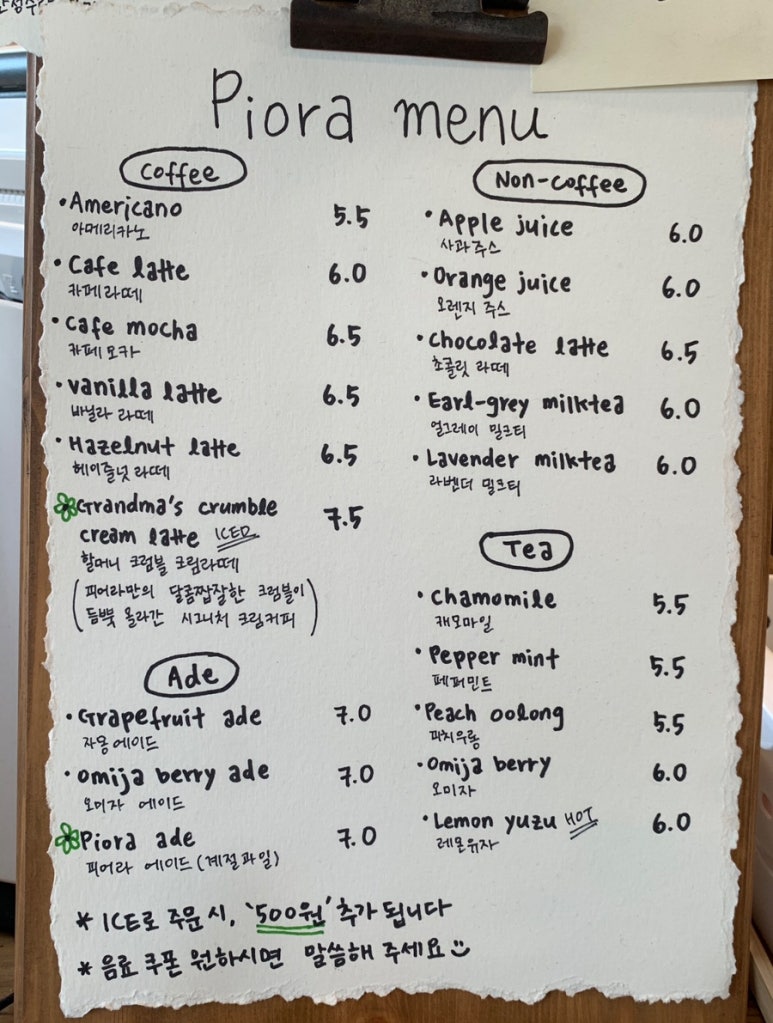 Piora menu
Coffee
•Americano 5.5
아메리카노
•Cafe latte 6.0
카페라떼
•Cafe mocha 6.5
카페모카
•vanilla latte 6.5
바닐라 라떼
•Hazelnut latte 6.5
헤이즐넛 라떼
Grandma's crumble
cream latte ICED 7.5
할머니 크럼블 크림라떼
(피어라만의 달콤짭잘한 크럼블이
듬뿍 올라간 시그니처 크림커피)
Ade
•Grapefruit ade 7.0
자몽에이드
•omija berry ade 7.0
오미자 에이드
Piora ade 7.0
피어라 에이드(계절과일)
Non-coffee
•Apple juice 6.0
사과주스
•Orange juice 6.0
오렌지 주스
•chocolate latte 6.5
초콜릿 라떼
•Earl-grey milktea 6.0
얼그레이 밀크티
•Lavender milktea 6.0
라벤더 밀크티
Tea
•chamomile 5.5
캐모마일
•Pepper mint 5.5
페퍼민트
•Peach oolong 5.5
피치우롱
•Omija berry 6.0
오미자
•Lemon yuzu HOT 6.0
레몬유자
* ICE로 주문 시, '500원' 추가 됩니다
* 음료 쿠폰 원하시면 말씀해 주세요